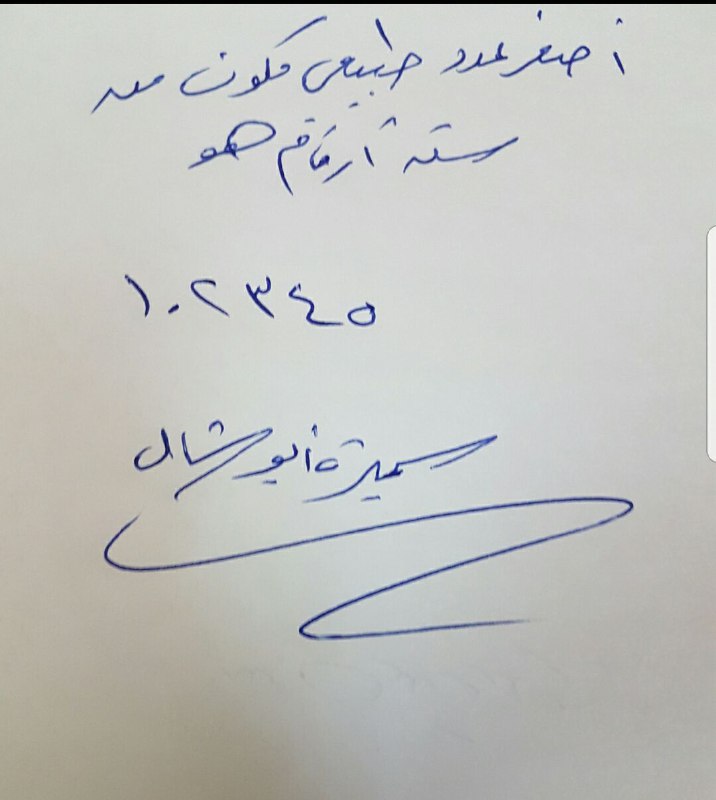 أصغر عدد طبيعي مكون من
ستة أرقام هو
١٠٢٣٤٥
سميرة أبو شال